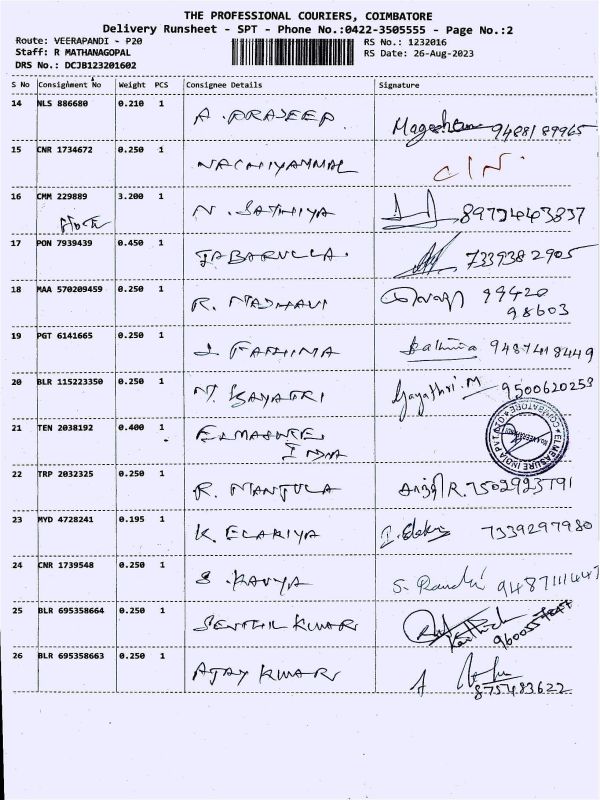 THE PROFESSIONAL COURIERS, COIMBATORE
Delivery Runsheet - SPT - Phone No.:0422-3505555 - Page No.:2
Route: VEERAPANDI - P20 RS No.: 1232016
Staff: R MATHANAGOPAL RS Date: 26-Aug-2023
DRS No.: DCJB123201602
S No Consignment No Weight PCS Consignee Details Signature
14 NLS 886680 0.210 1 A. PRADEEP 9488189965
15 CNR 1734672 0.250 1 NACHIYAMMAL
16 CMM 229889 3.200 1 N. SATHIYA 8972443837
17 PON 7939439 0.450 1 JABARULLA. 7339382905
18 MAA 570209459 0.250 1 R. MADHAVI 99420
98603
19 PGT 6141665 0.250 1 J FATHIMA Fathima 9487418449
20 BLR 115223350 0.250 1 M. GAYATRI Gayathri. M 9500620253
21 TEN 2038192 0.400 1 ELMASURE
INDIA ELMEASURE INDIA PVT LTD COIMBATORE
22 TRP 2032325 0.250 1 R. MANJULA R. 7502923791
23 MYD 4728241 0.195 1 K. ELARIYA 7339297980
24 CNR 1739548 0.250 1 S. KAVYA
25 BLR 695358664 0.250 1 SENTHIL KUMAR
26 BLR 695358663 0.250 1 AJAY KUMAR 875483622